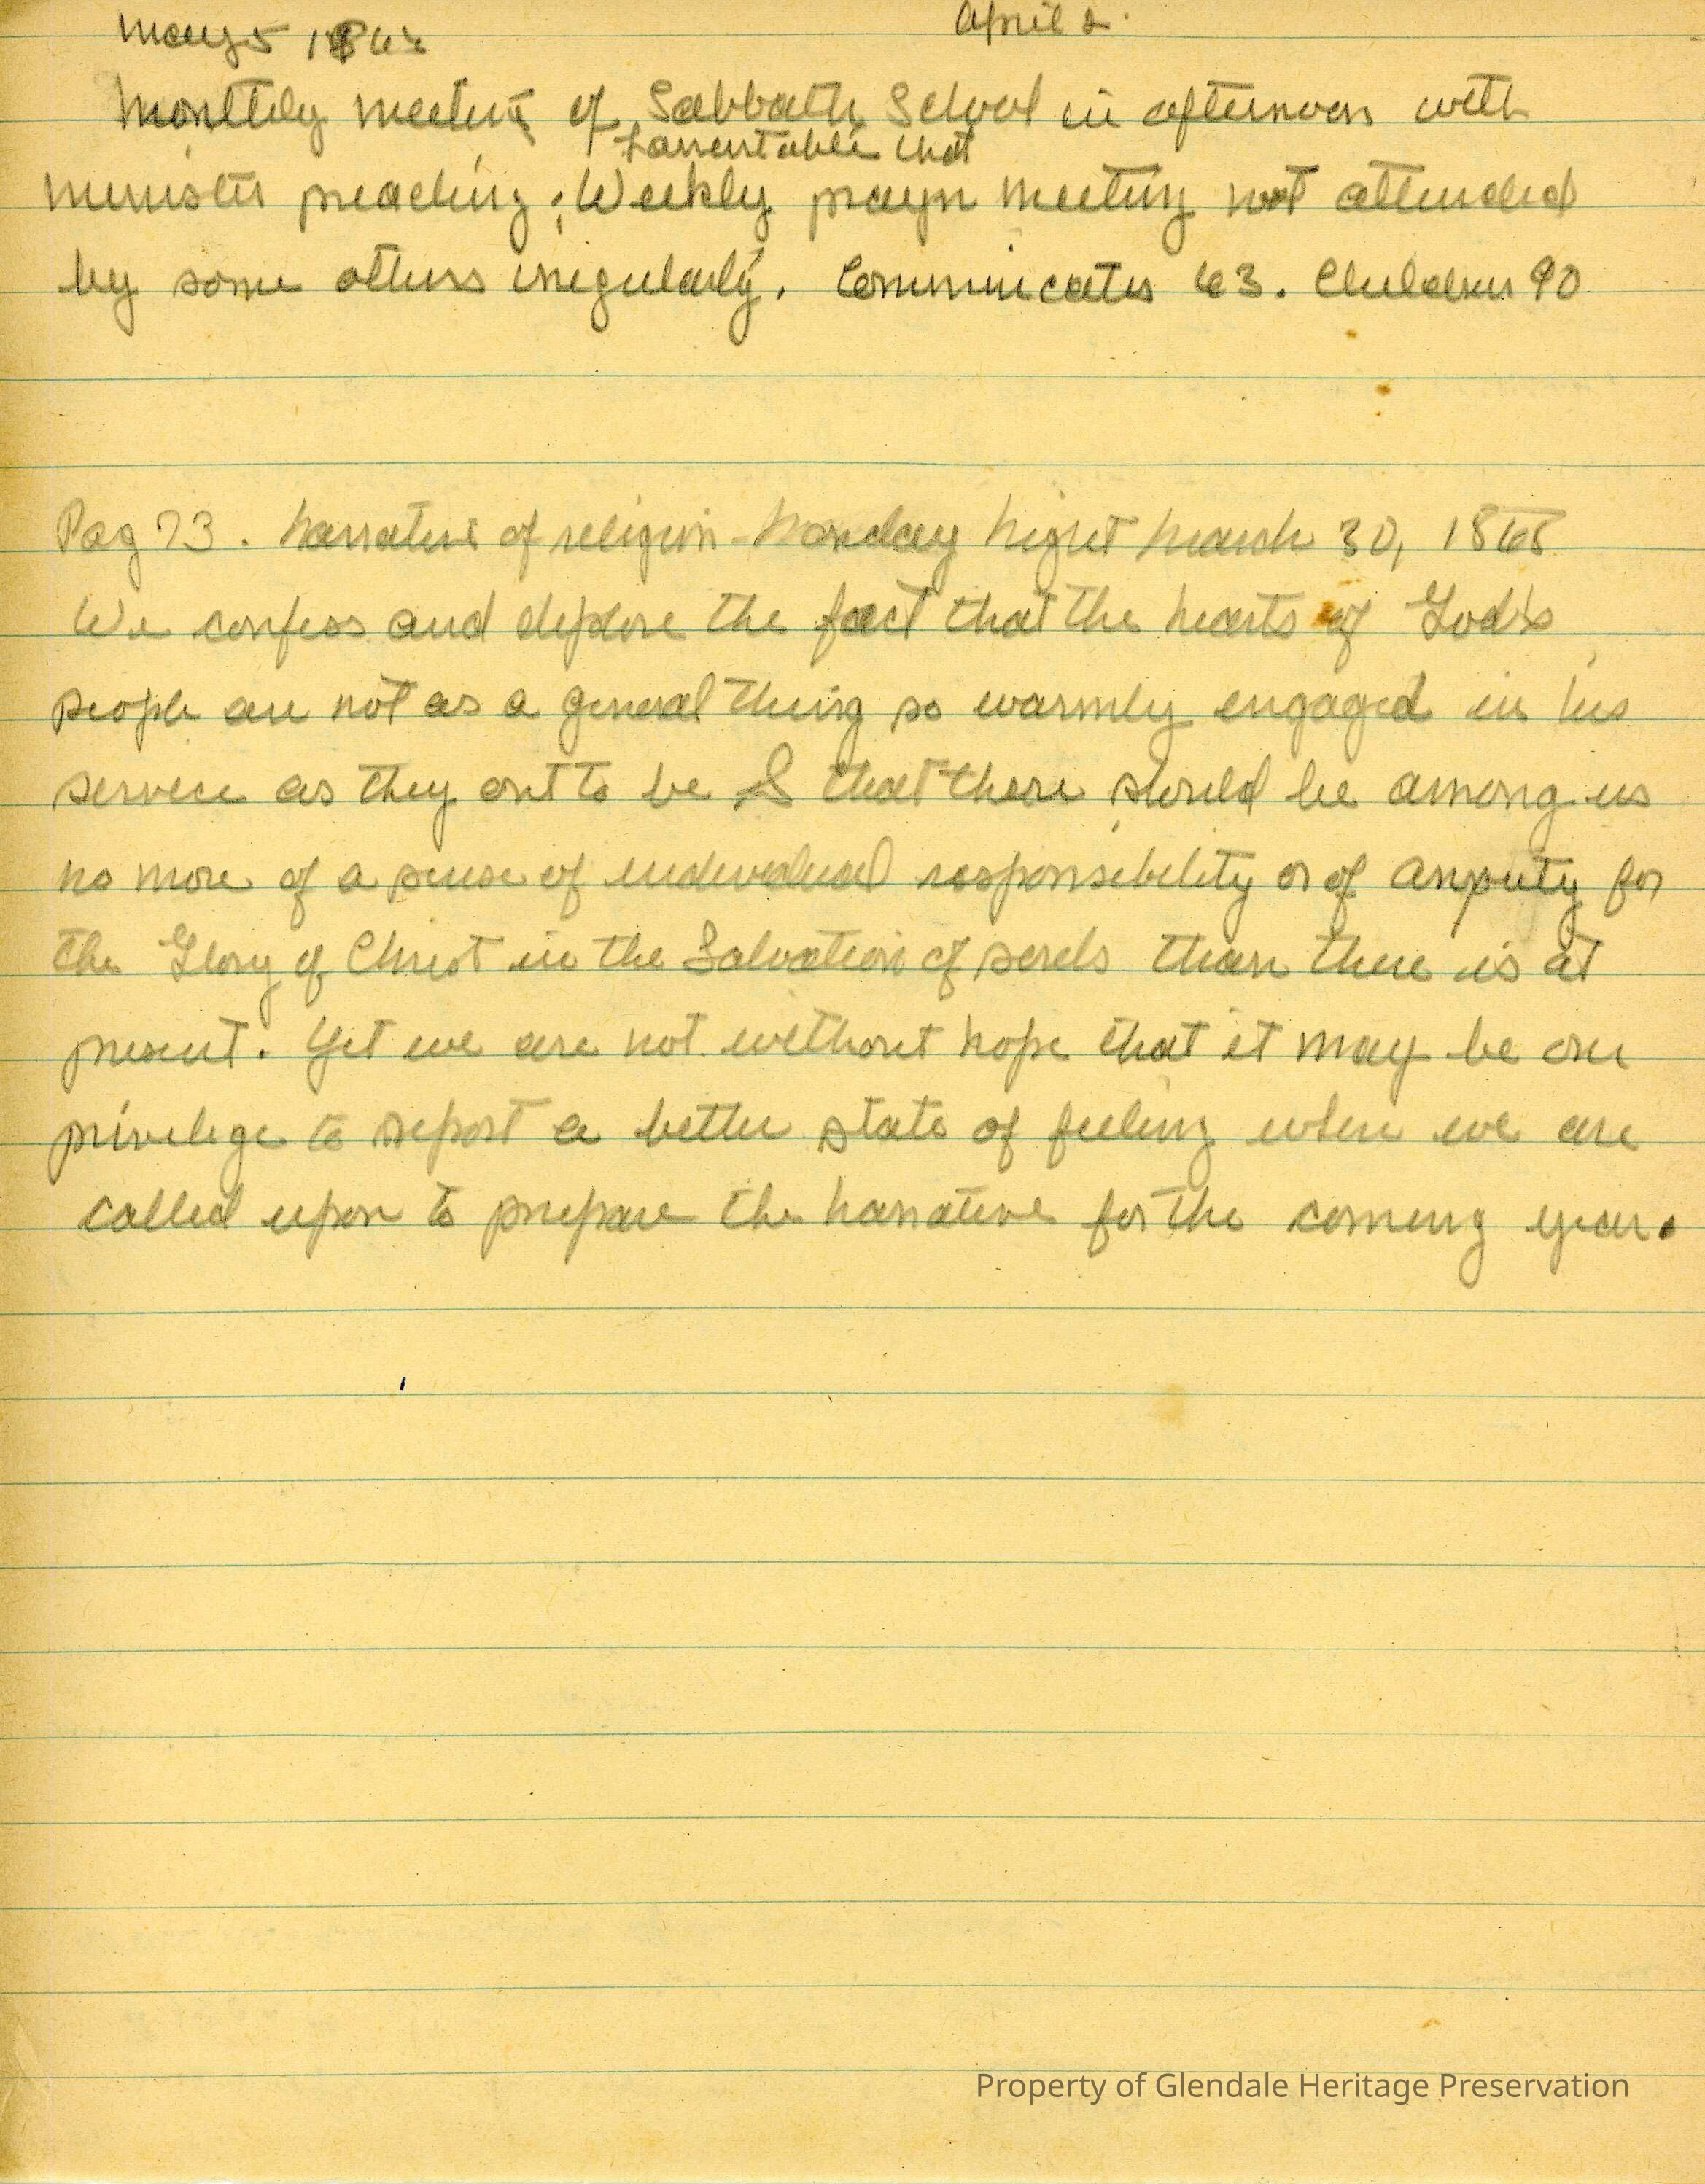 May 5 186 April 2.
Monthly meeting of Sabbath School in afternoon with
Lamentable that
minister preaching; Weekly prayer meeting not attended
by some others irregularly. Communicates 63. Children 90
Pag 73. Narrative of religion - Monday night March 30, 1868
We confess and deplore the fact that the hearts of God's
people are not as a general thing so warmly engaged in his
service as they out to be & that there should be among us
no more of a sense of individual responsibility or of anxiety for
the Glory of Christ in the Salvation of souls than there is at
present. Yet we are not without hope that it may be our
privilege to report a better state of feeling when we are
called upon to prepare the narrative for the coming year.
Property of Glendale Heritage Preservation